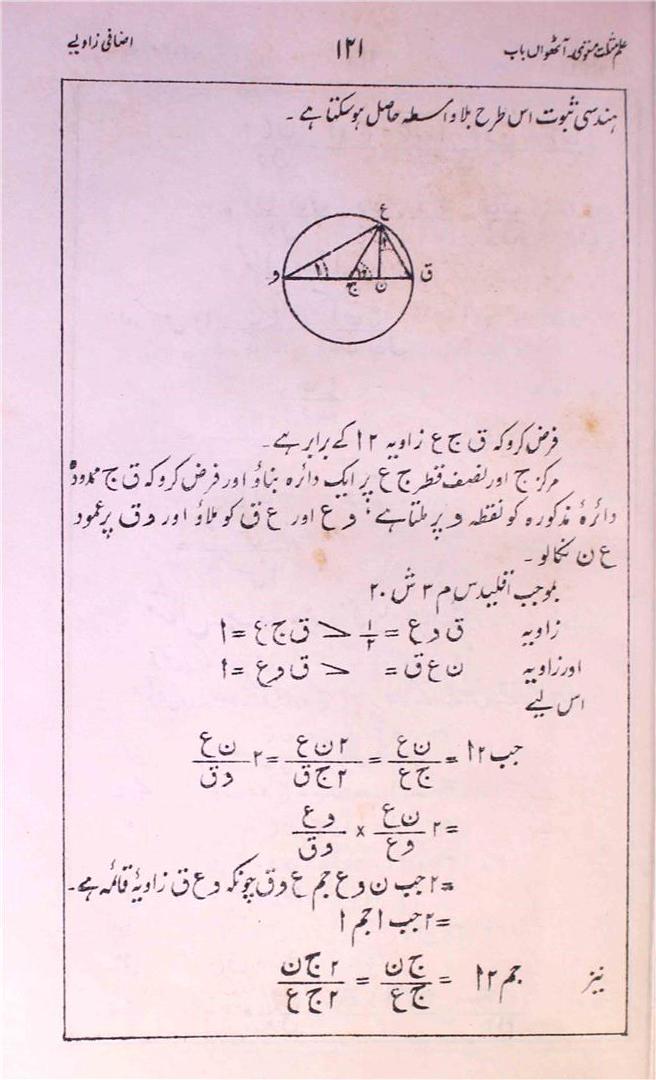 علم مثلث مستوی۔ آٹھواں باب ۱۲۱ اضافی زاویے
ہندسی ثبوت اس طرح بلا واسطہ حاصل ہو سکتا ہے ۔
ع
و ج ن ق
فرض کرو کہ ق ج ع زاویہ ۲ا کے برابر ہے ۔
مرکز ج اور نصف قطر ج ع پر ایک دائرہ بناؤ اور فرض کرو کہ ق ج ممدودہ
دائرۂ مذکورہ کو نقطہ و پر ملتا ہے ؛ و ع اور ع ق کو ملاؤ اور و ق پر عمود
ع ن نکالو ۔
بموجب اقلیدس م ۳ ش ۲۰
زاویہ ق و ع = ۱/۲ > ق ج ع = ا
اور زاویہ ن ع ق = > ق و ع = ا
اس لیے
جب ۲ا = ن ع/ج ع = ۲ ن ع/۲ ج ق = ۲ ن ع/و ق
= ۲ ن ع/و ع × و ع/و ق
= ۲ جب ن و ع جم ع و ق چونکہ و ع ق زاویۂ قائمہ ہے ۔
= ۲ جب ا جم ا
نیز جم ۲ا = ج ن/ج ع = ۲ ج ن/۲ ج ع